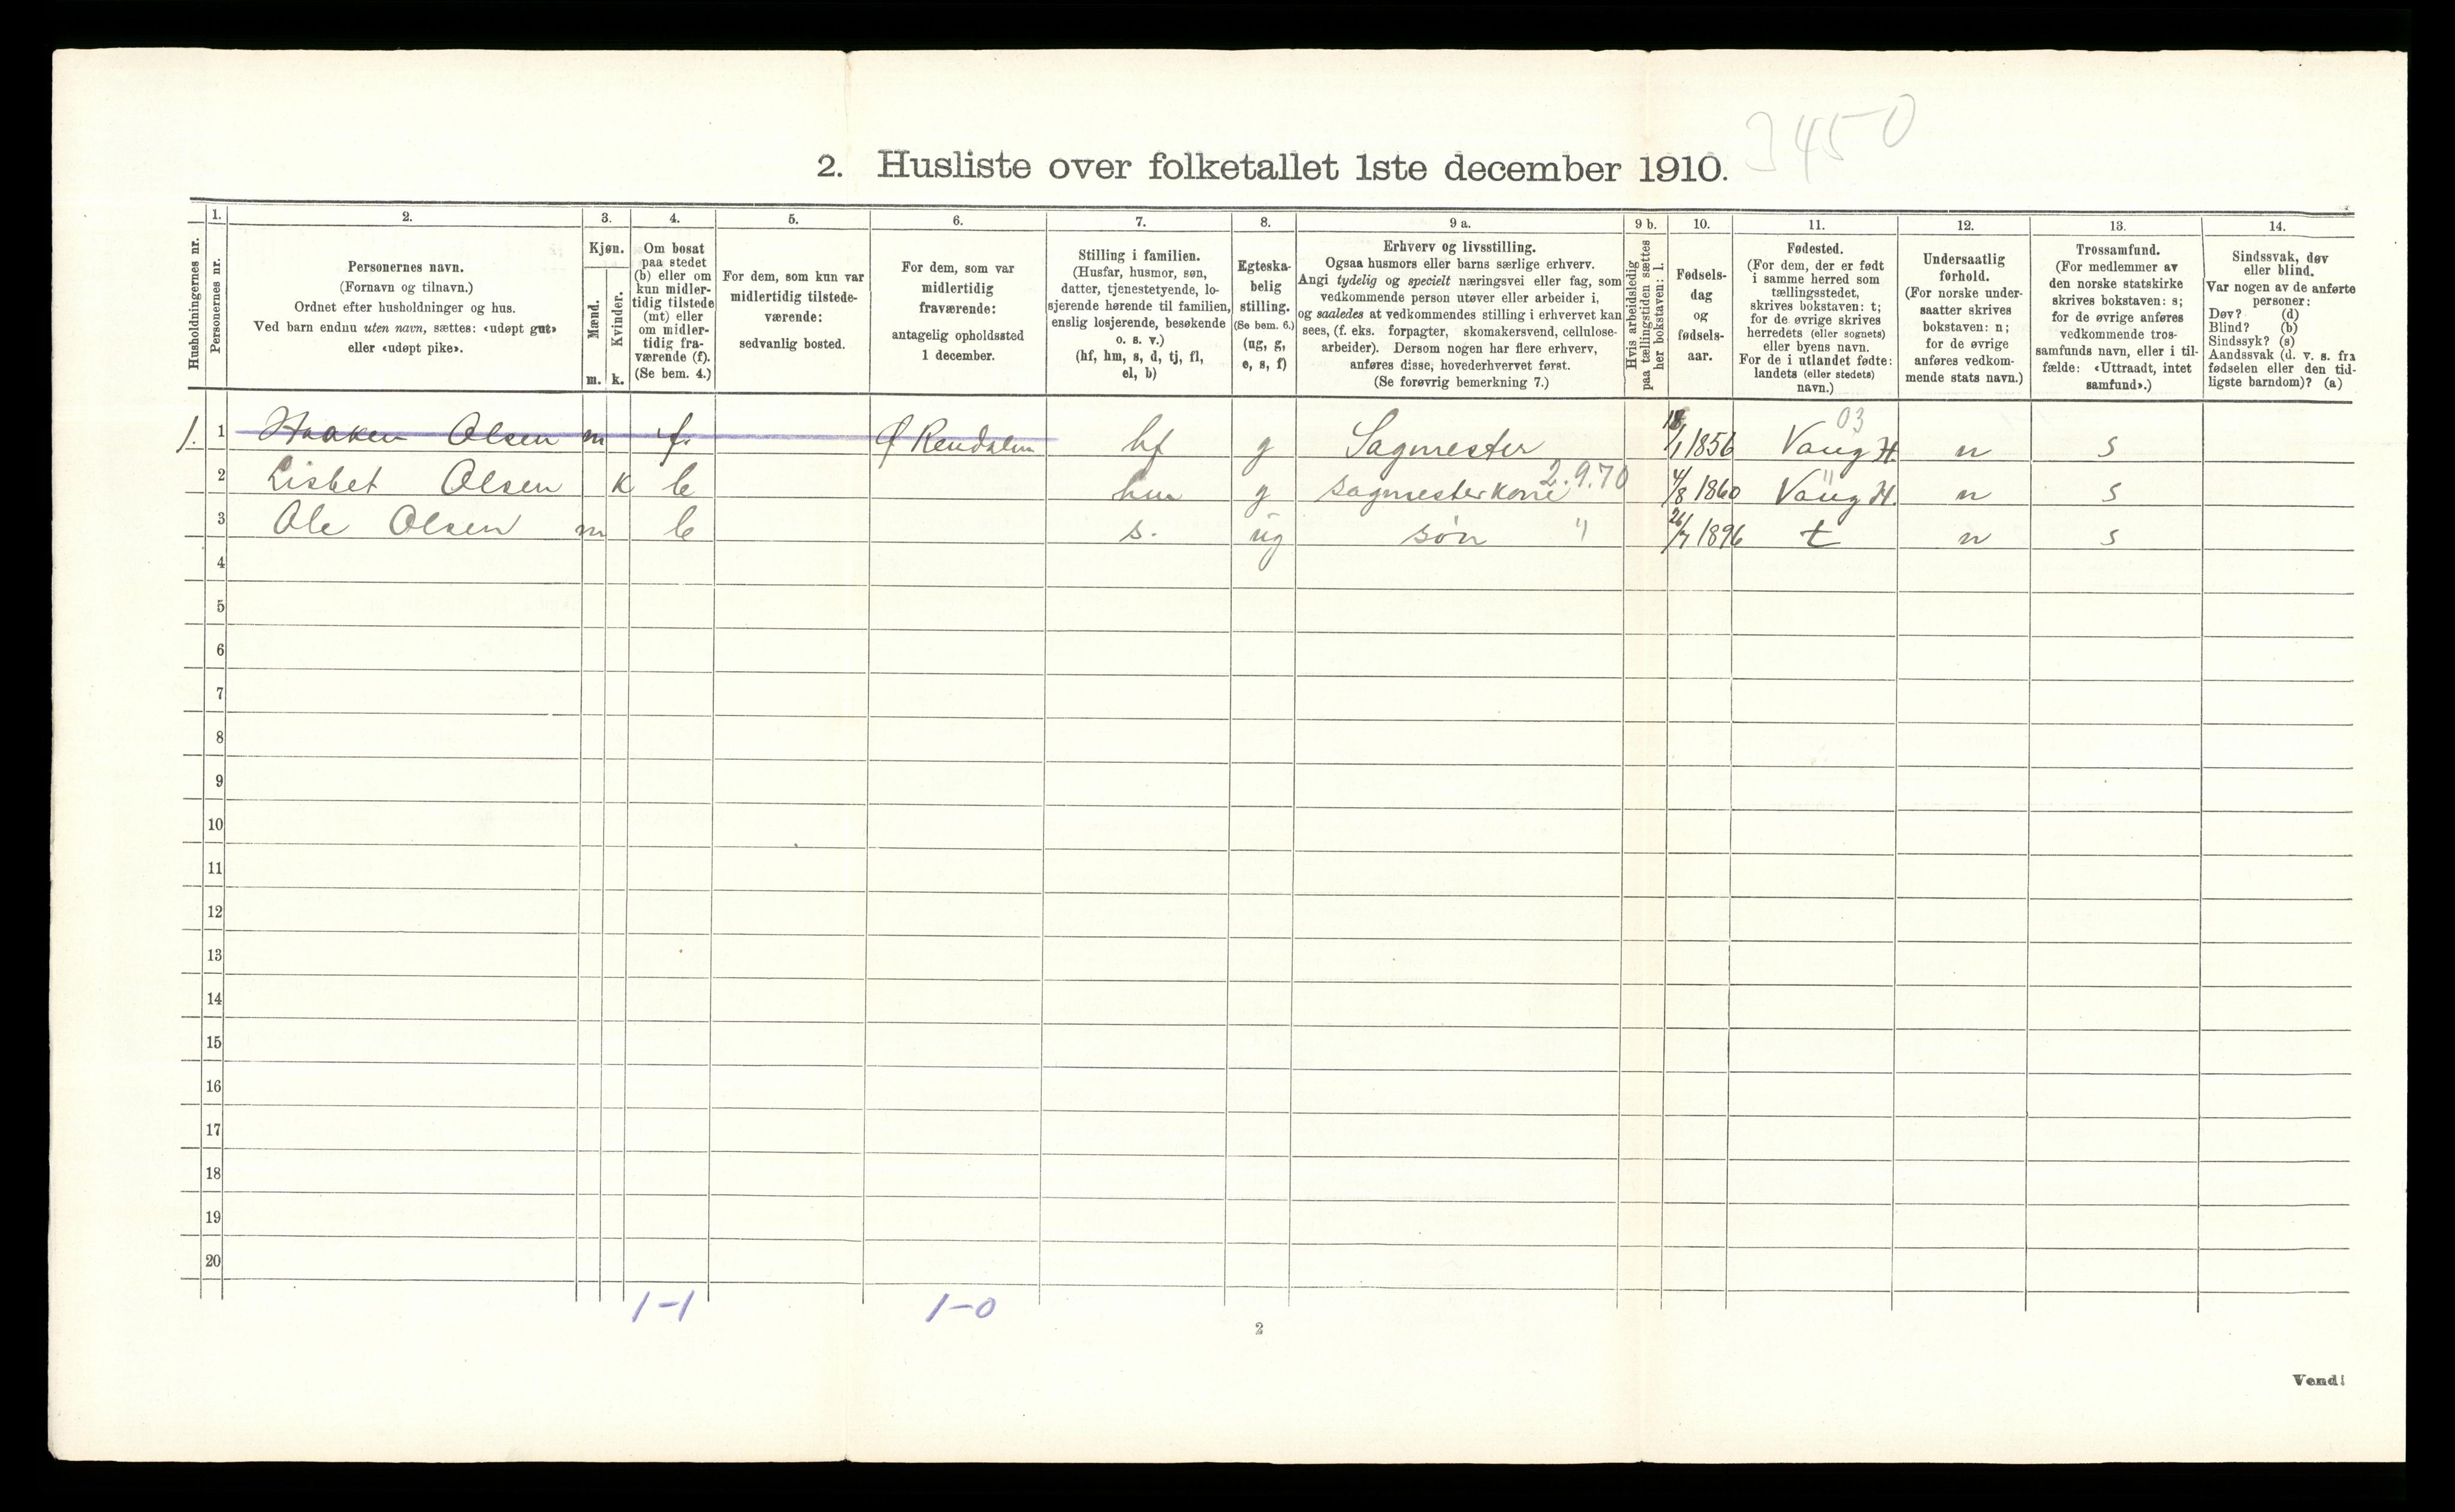 3450
2. Husliste over folketallet 1ste december 1910.
Husholdningernes nr.
1.
Personernes nr.
2.
Personernes navn.
(Fornavn og tilnavn.)
Ordnet efter husholdninger og hus.
Ved barn endnu uten navn, sættes: «udøpt gut»
eller «udøpt pike».
3.
Kjøn.
Mænd.
Kvinder.
m. k.
4.
Om bosat
paa stedet
(b) eller om
kun midler-
tidig tilstede
(mt) eller
om midler-
tidig fra-
værende (f).
(Se bem. 4.)
5.
For dem, som kun var
midlertidig tilstede-
værende:
sedvanlig bosted.
6.
For dem, som var
midlertidig
fraværende:
antagelig opholdssted
1 december.
7.
Stilling i familien.
(Husfar, husmor, søn,
datter, tjenestetyende, lo-
sjerende hørende til familien,
enslig losjerende, besøkende
o. s. v.)
(hf, hm, s, d, tj, fl,
el, b)
8.
Egteska-
belig
stilling.
(Se bem. 6.)
(ug, g,
e, s, f)
9 a.
Erhverv og livsstilling.
Ogsaa husmors eller barns særlige erhverv.
Angi tydelig og specielt næringsvei eller fag, som
vedkommende person utøver eller arbeider i,
og saaledes at vedkommendes stilling i erhvervet kan
sees, (f. eks. forpagter, skomakersvend, cellulose-
arbeider). Dersom nogen har flere erhverv,
anføres disse, hovederhvervet først.
(Se forøvrig bemerkning 7.)
9 b.
Hvis arbeidsledig
paa tællingstiden sættes
her bokstaven: l.
10.
Fødsels-
dag
og
fødsels-
aar.
11.
Fødested.
(For dem, der er født
i samme herred som
tællingsstedet,
skrives bokstaven: t;
for de øvrige skrives
herredets (eller sognets)
eller byens navn.
For de i utlandet fødte:
landets (eller stedets)
navn.)
12.
Undersaatlig
forhold.
(For norske under-
saatter skrives
bokstaven: n;
for de øvrige
anføres vedkom-
mende stats navn.)
13.
Trossamfund.
(For medlemmer av
den norske statskirke
skrives bokstaven: s;
for de øvrige anføres
vedkommende tros-
samfunds navn, eller i til-
fælde: «Uttraadt, intet
samfund».)
14.
Sindssvak, døv
eller blind.
Var nogen av de anførte
personer:
Døv? (d)
Blind? (b)
Sindssyk? (s)
Aandssvak (d. v. s. fra
fødselen eller den tid-
ligste barndom)? (a)
03
1. 1 Haaken Olsen m f. Ø Rendalen hf g Sagmester /1 1856 Vang H. n s
2.9.70 "
2 Lisbet Olsen k b hm g sagmesterkone 4/8 1860 Vang H. n s
3 Ole Olsen m b s. ug søn " 26/7 1896 t n s
4
5
6
7
8
9
10
11
12
13
14
15
16
17
18
19
20
1-1 1-0
2
Vend!